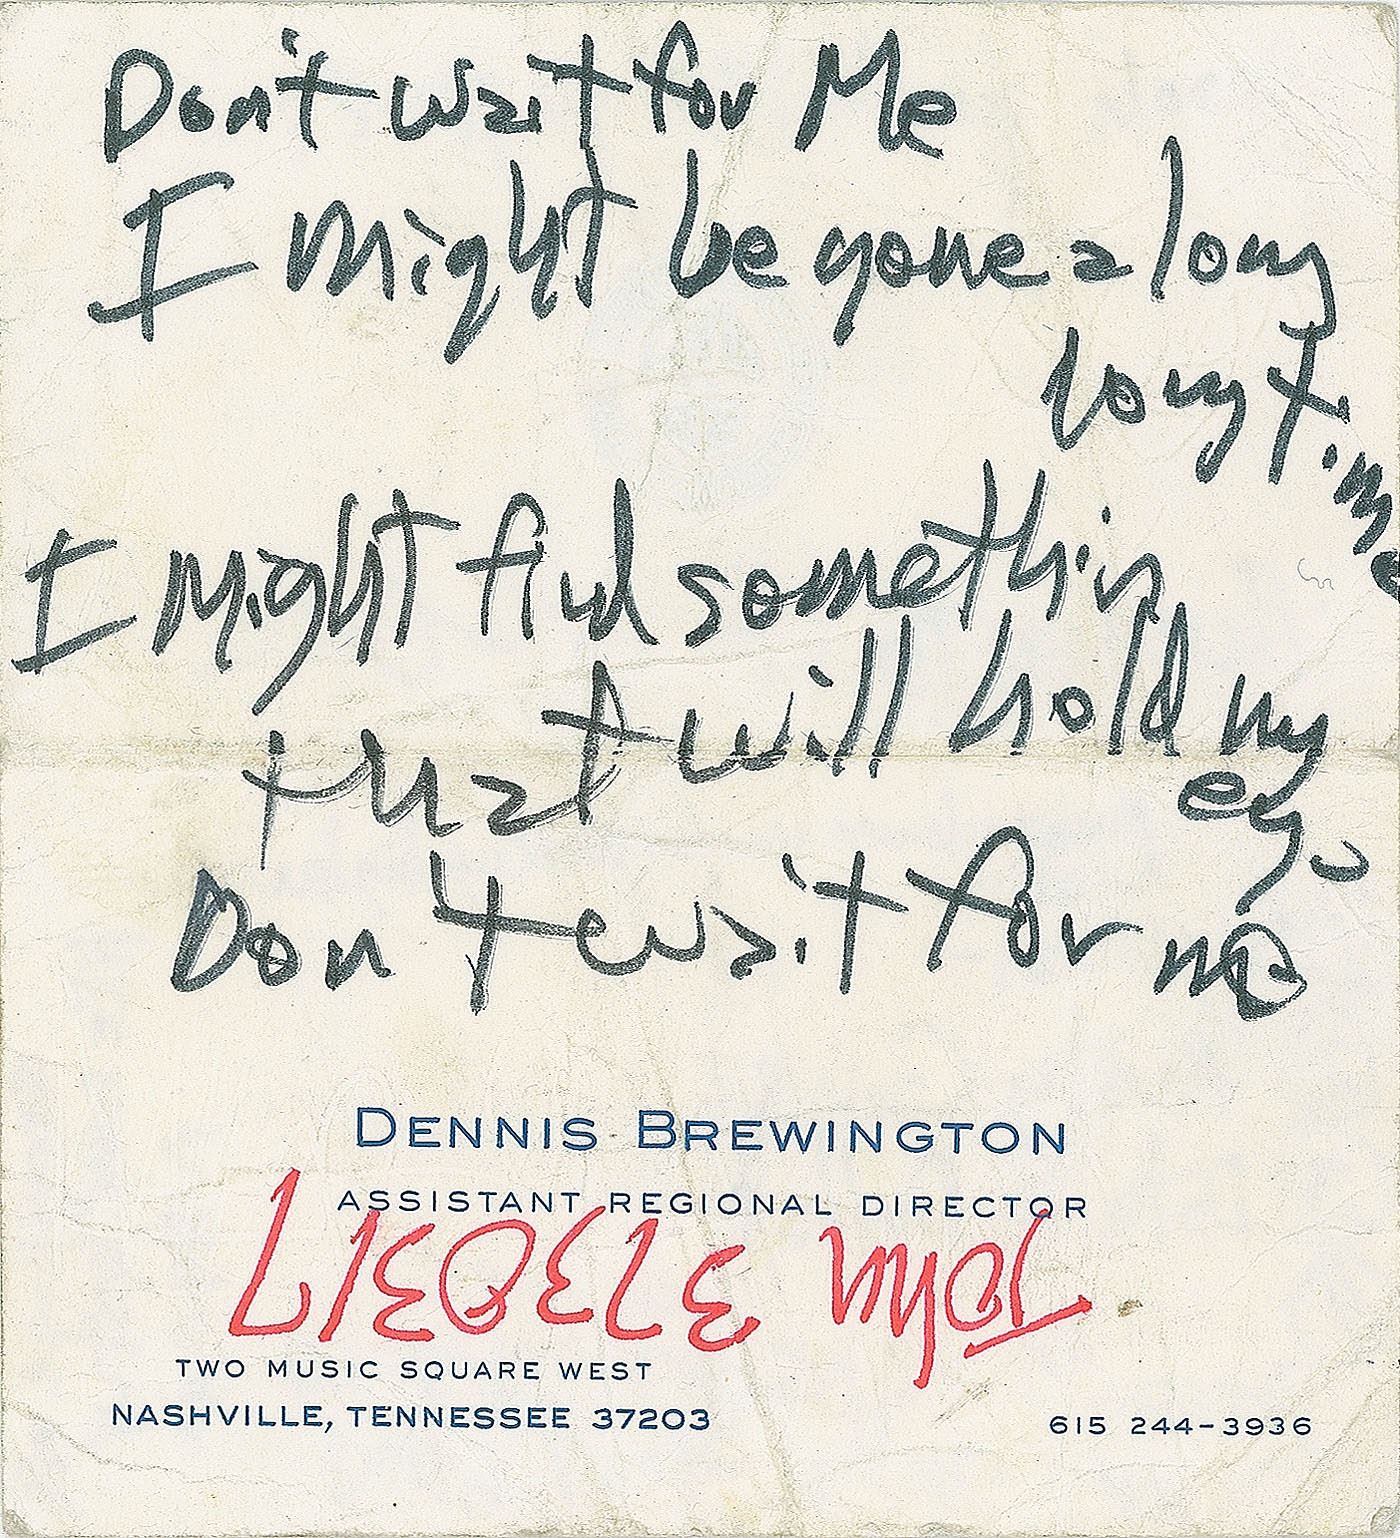 Don't wait for Me
I might be gone a long
long time
I might find somethin
that will hold my
eye
Don't wait for me
DENNIS BREWINGTON
ASSISTANT REGIONAL DIRECTOR
John
TWO MUSIC SQUARE WEST
NASHVILLE, TENNESSEE 37203
615 244-3936